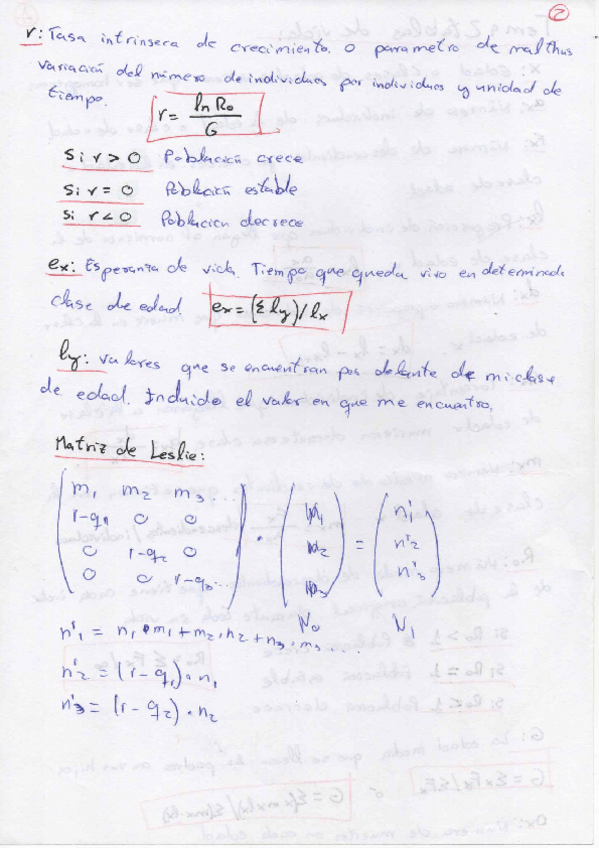 2
r: Tasa intrinseca de crecimiento. o parametro de malthus
variación del número de individuos por individuos y unidad de
tiempo.
r = ln R₀ / G
Si r > 0 Población crece
Si r = 0 Población estable
Si r < 0 Poblacion decrece
ex: Esperanza de vida. Tiempo que queda vivo en determinada
clase de edad. ex = (Σ ly) / lx
ly: valores que se encuentran por delante de mi clase
de edad. Incluido el valor en que me encuentro.
Matriz de Leslie:
m₁ m₂ m₃ ...
1-q₁ 0 0
0 1-q₂ 0
0 0 1-q₃...
· (n₁ n₂ n₃) = (n'₁ n'₂ n'₃)
N₀ N₁
n'₁ = n₁ · m₁ + m₂ · n₂ + n₃ · m₃ ...
n'₂ = (1-q₁) · n₁
n'₃ = (1-q₂) · n₂